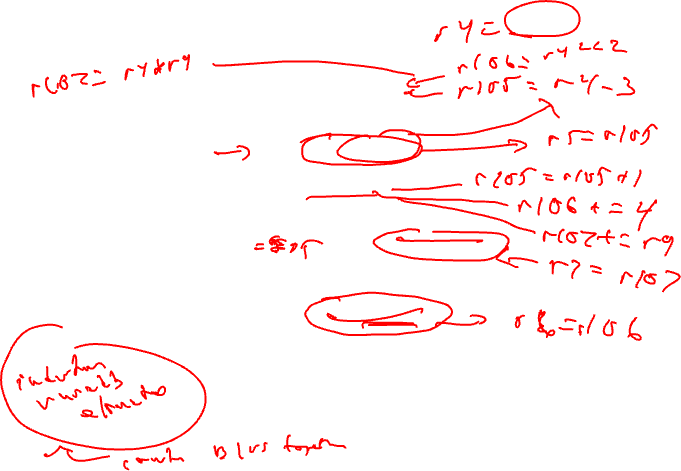 r4 =
r106 = r4<<2
r107 = r4*r9
r105 = r4-3
r5 = r105
r105 = r105+1
r106 += 4
r107 += r9
r7 = r107
r6 = r106
induction
variable
together